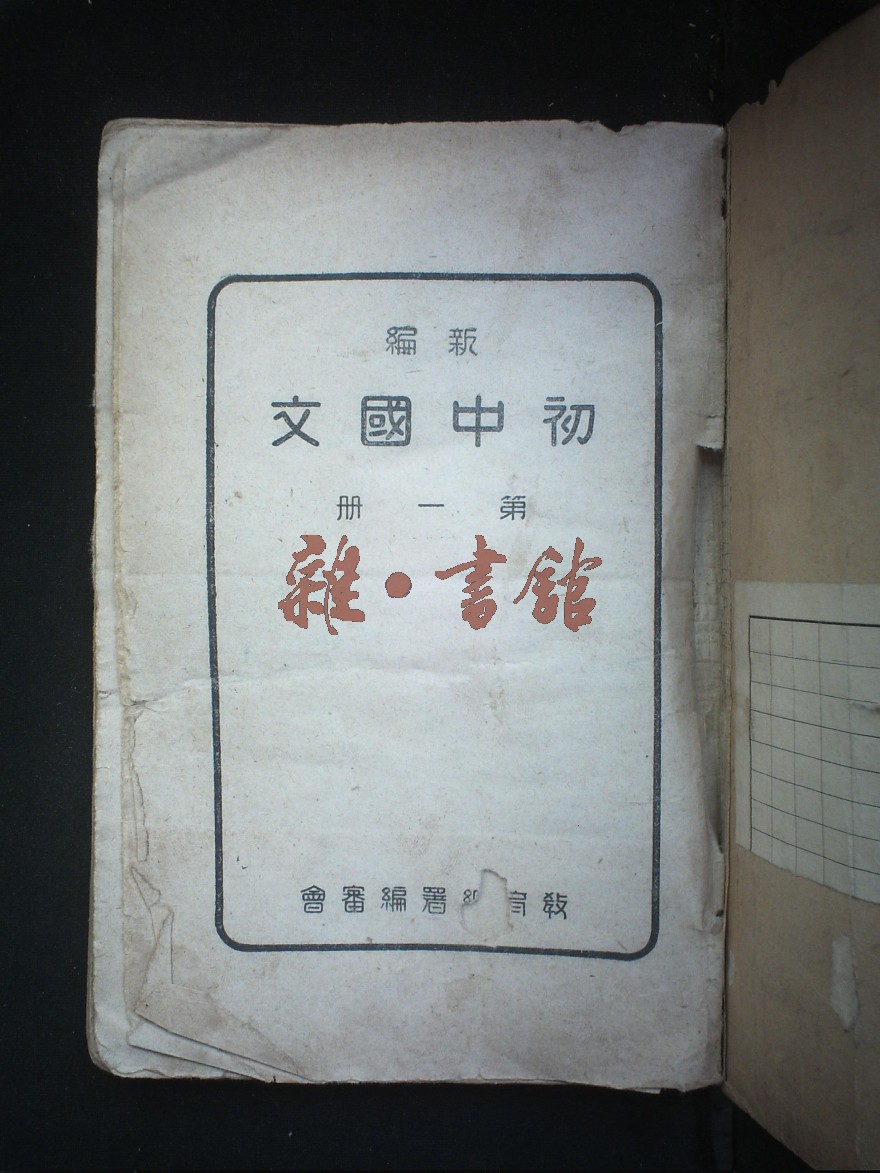 新編
初中國文
第一册
雜•書館
教育總署編審會